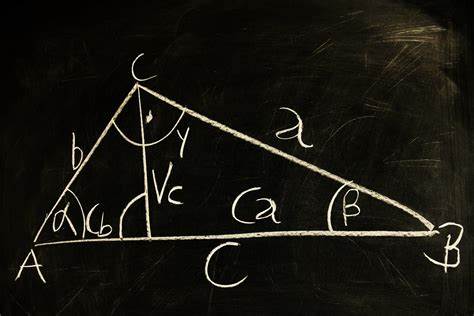 C
γ
a
b
Vc
α
Cb
Ca
β
A
C
B